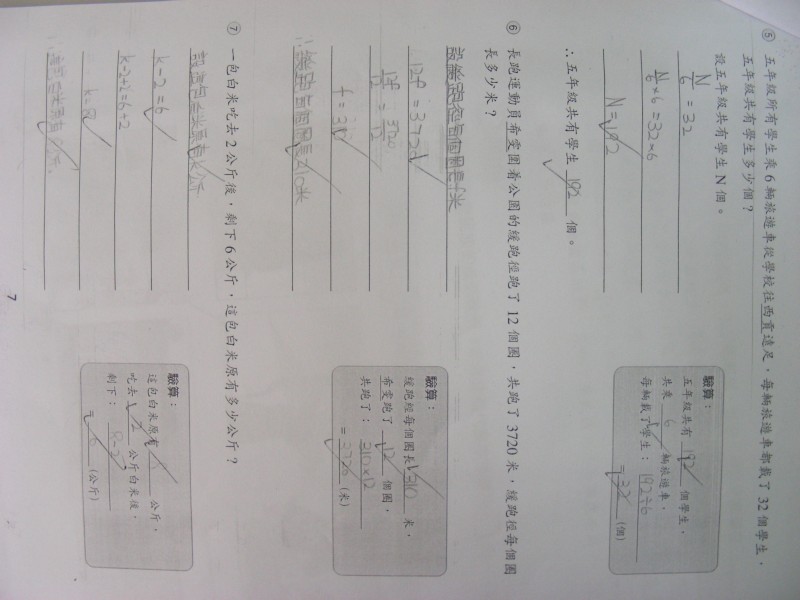 ⑤ 五年級所有學生乘 6 輛旅遊車從學校往西貢遠足,每輛旅遊車都載了 32 個學生,
五年級共有學生多少個?
設五年級共有學生 N 個。
N/6 = 32
N/6 × 6 = 32×6
N = 192
∴ 五年級共有學生 192 個。
驗算:
五年級共有 192 個學生,
共乘 6 輛旅遊車,
每輛載了學生: 192÷6
= 32 (個)
⑥ 長跑運動員希雯圍着公園的緩跑徑跑了 12 個圈,共跑了 3720 米,緩跑徑每個圈
長多少米?
設緩跑徑每個圈長f米
12f = 3720
12f/12 = 3720/12
f = 310
∴緩跑徑每個圈長310米
驗算:
緩跑徑每個圈長 310 米,
希雯跑了 12 個圈,
共跑了: 310×12
= 3720 (米)
⑦ 一包白米吃去 2 公斤後,剩下 6 公斤,這包白米原有多少公斤?
設這包白米原有k公斤
k-2=6
k-2+2=6+2
k=8
驗算:
這包白米原有 公斤,
吃去 2 公斤白米後,
剩下: 8-2
= 6 (公斤)
7